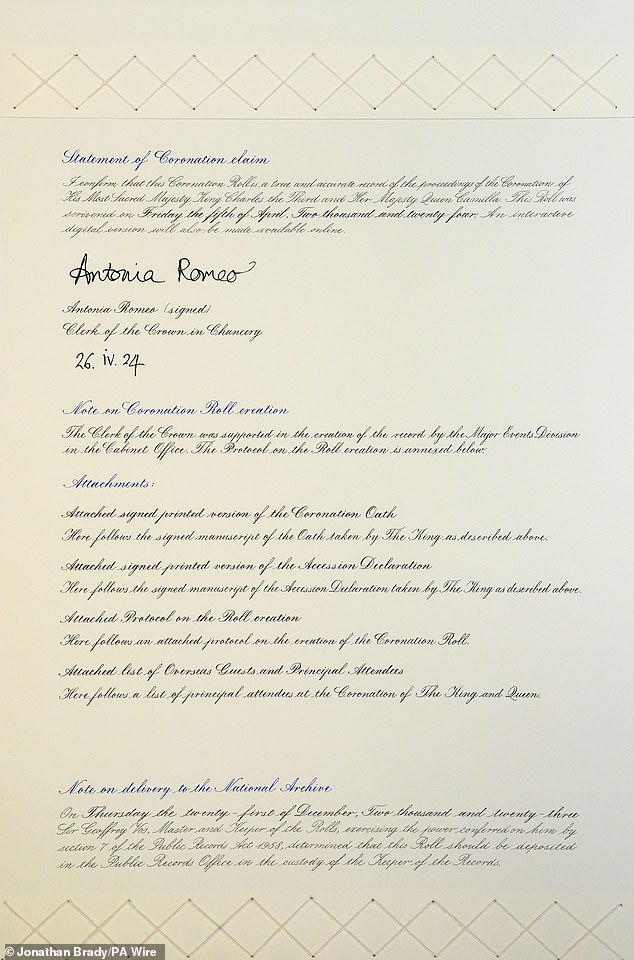 Statement of Coronation claim
I confirm that this Coronation Roll is a true and accurate record of the proceedings of the Coronation of
His Most Sacred Majesty King Charles the Third and Her Majesty Queen Camilla. This Roll was
scrivened on Friday the fifth of April, Two thousand and twenty-four. An interactive
digital version will also be made available online.
Antonia Romeo
Antonia Romeo (signed)
Clerk of the Crown in Chancery
26. iv. 24
Note on Coronation Roll creation
The Clerk of the Crown was supported in the creation of the record by the Major Events Division
in the Cabinet Office. The Protocol on the Roll creation is annexed below.
Attachments:
Attached signed printed version of the Coronation Oath
Here follows the signed manuscript of the Oath taken by The King as described above.
Attached signed printed version of the Accession Declaration
Here follows the signed manuscript of the Accession Declaration taken by The King as described above.
Attached Protocol on the Roll creation
Here follows an attached protocol on the creation of the Coronation Roll.
Attached list of Overseas Guests and Principal Attendees
Here follows a list of principal attendees at the Coronation of The King and Queen.
Note on delivery to the National Archive
On Thursday the twenty-first of December, Two thousand and twenty-three
Sir Geoffrey Vos, Master and Keeper of the Rolls, exercising the power conferred on him by
section 7 of the Public Records Act 1958, determined that this Roll should be deposited
in the Public Records Office in the custody of the Keeper of the Records.
© Jonathan Brady/PA Wire